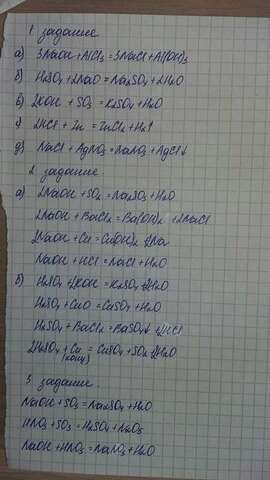 1 задание
а) 3NaOH + AlCl₃ = 3NaCl + Al(OH)₃
б) H₂SO₄ + 2NaO = Na₂SO₄ + 2H₂O
в) 2KOH + SO₃ = K₂SO₄ + H₂O
г) 2HCl + Zn = ZnCl₂ + H₂↑
д) NaCl + AgNO₃ = NaNO₃ + AgCl↓
2 задание.
а) 2NaOH + SO₂ = Na₂SO₃ + H₂O
2NaOH + BaCl₂ = Ba(OH)₂ + 2NaCl
2NaOH + Cu = Cu(OH)₂ + 2Na
NaOH + HCl = NaCl + H₂O
б) H₂SO₄ + 2KOH = K₂SO₄ + 2H₂O
H₂SO₄ + CuO = CuSO₄ + H₂O
H₂SO₄ + BaCl₂ = BaSO₄↓ + 2HCl
2H₂SO₄ + Cu = CuSO₄ + SO₂ + 2H₂O
(конц)
3 задание.
NaOH + SO₃ = Na₂SO₄ + H₂O
HNO₃ + SO₃ = H₂SO₄ + N₂O₅
NaOH + HNO₃ = NaNO₃ + H₂O